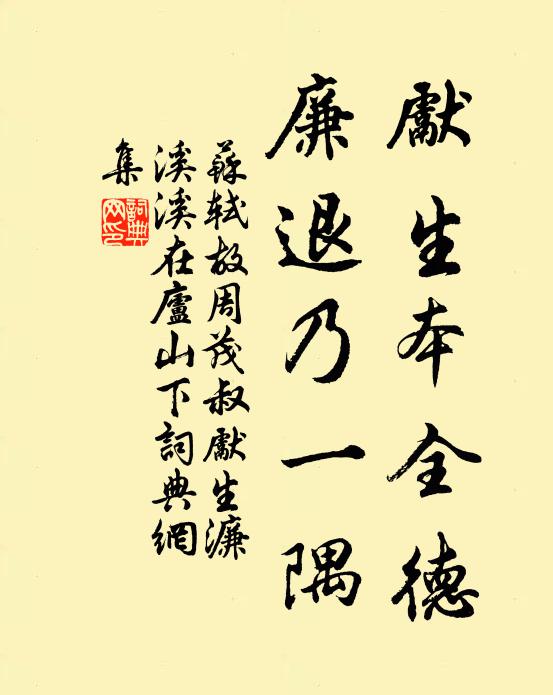 獻生本全德
廉退乃一隅
蘇軾故周茂叔獻生濂
溪溪在廬山下詞典網
集
詞典
网印